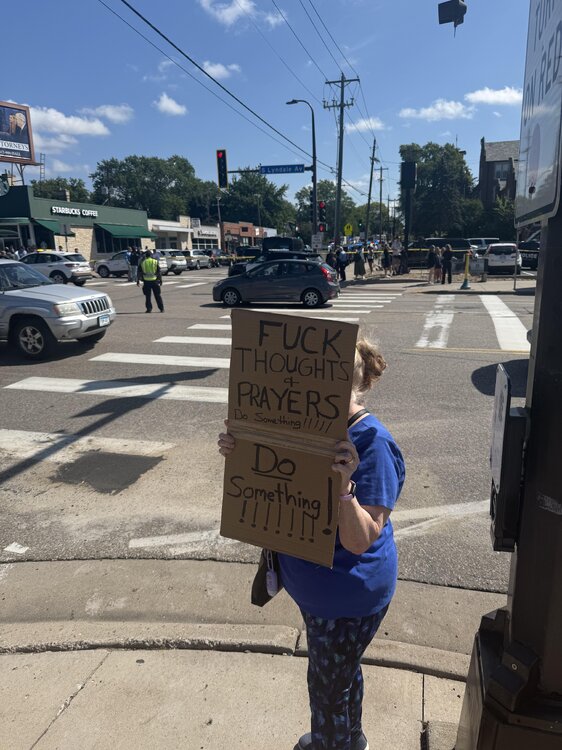 TORNEYS
STARBUCKS COFFEE
S Lyndale Av
TURN
ON RED
FUCK
THOUGHTS
&
PRAYERS
Do Something!!!!!
Do
Something!
!!!!!!!